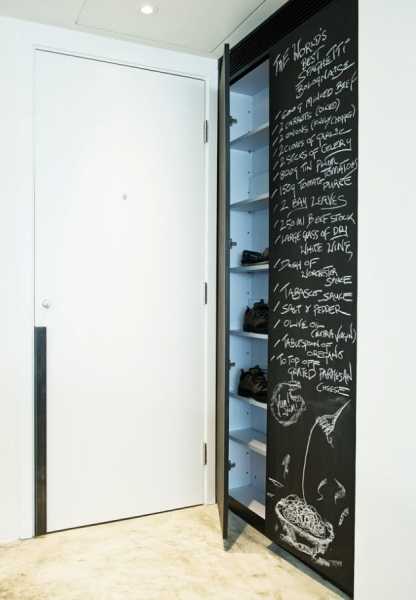 THE WORLD'S
BEST
SPAGHETTI
BOLOGNAISE
600g MINCED BEEF
2 CARROTS (DICED)
2 ONIONS (FINELY CHOPPED)
2 CLOVES OF GARLIC
2 STICKS OF CELERY
800g TIN PLUM
TOMATOES
150g TOMATO PUREE
2 BAY LEAVES
250 Ml BEEF STOCK
LARGE GLASS OF DRY
WHITE WINE
DASH OF
WORCHESTER
SAUCE
TABASCO SAUCE
SALT & PEPPER
OLIVE OIL (EXTRA VIRGIN)
TABLESPOON OF
OREGANO
TO TOP OFF
GRATED PARMESAN
CHEESE